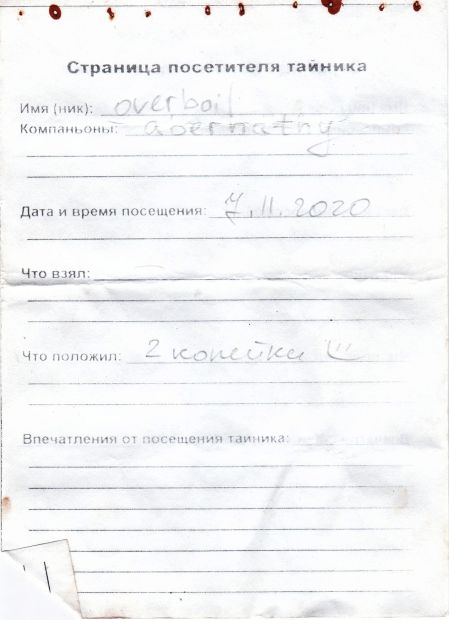 Страница посетителя тайника
Имя (ник): overboil
Компаньоны: abernathy
Дата и время посещения: 7.11.2020
Что взял:
Что положил: 2 копейки
Впечатления от посещения тайника: